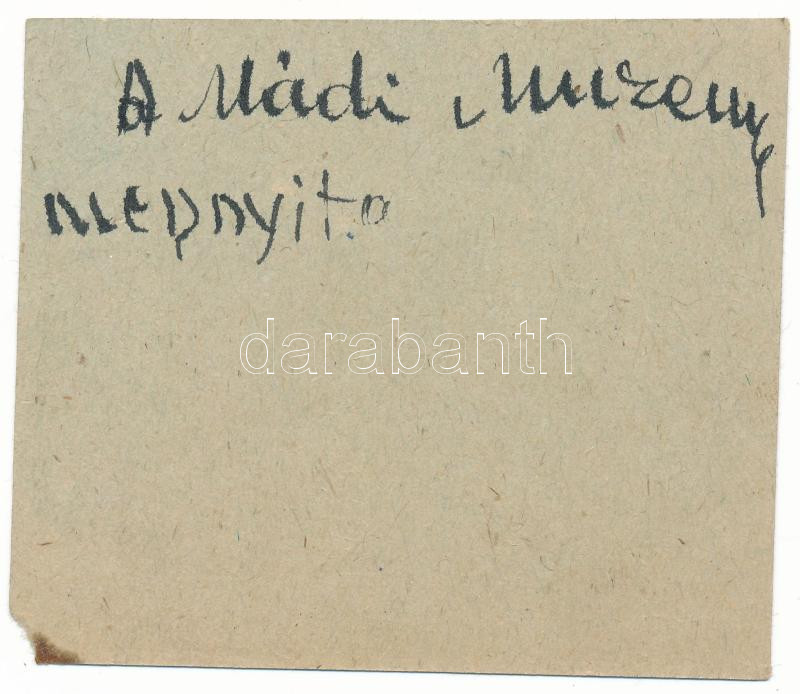 A Mádi Muzeum
megnyito
darabanth